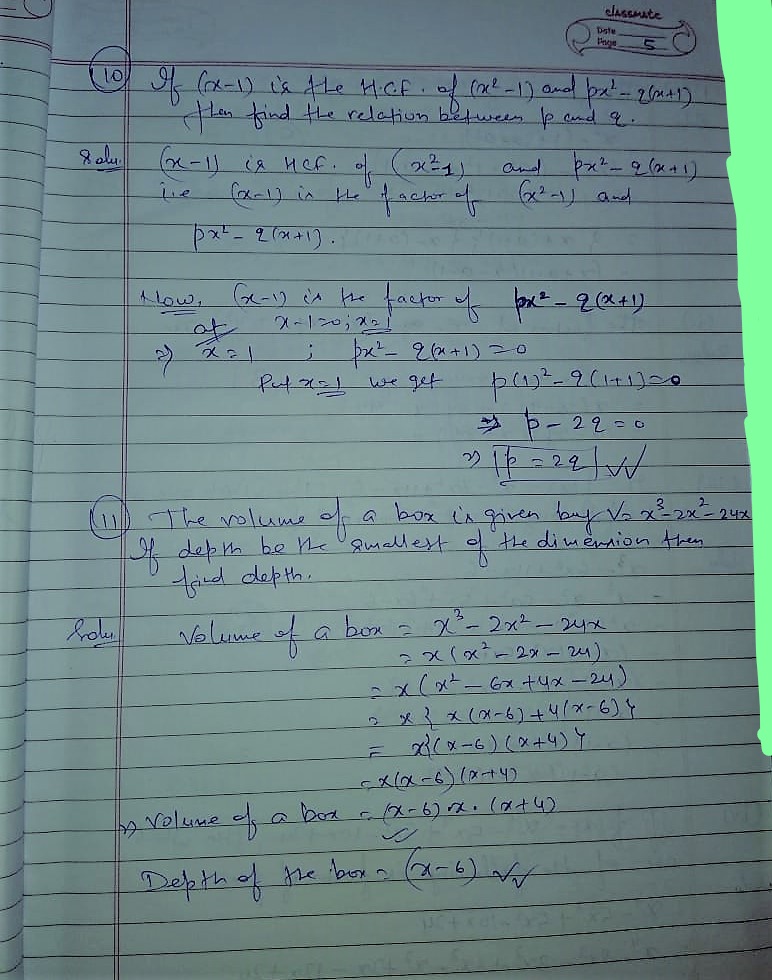 classmate
Date
Page 5
(10) If (x-1) is the H.C.F. of (x²-1) and px²-q(x+1)
then find the relation between p and q.
Solu. (x-1) is HCF. of (x²-1) and px²-q(x+1)
i.e (x-1) is the factor of (x²-1) and
px²-q(x+1).
Now, (x-1) is the factor of px²-q(x+1)
at x-1=0; x=1
⇒ x=1 ; px²-q(x+1)=0
Put x=1 we get p(1)²-q(1+1)=0
⇒ p-2q=0
⇒ p=2q
(11) The volume of a box is given buy V= x³-2x²-24x
If depth be the smallest of the dimension then
find depth.
Solu. Volume of a box = x³-2x²-24x
= x(x²-2x-24)
= x(x²-6x+4x-24)
= x{x(x-6)+4(x-6)}
= x{(x-6)(x+4)}
= x(x-6)(x+4)
⇒ Volume of a box = (x-6).x.(x+4)
Depth of the box = (x-6)